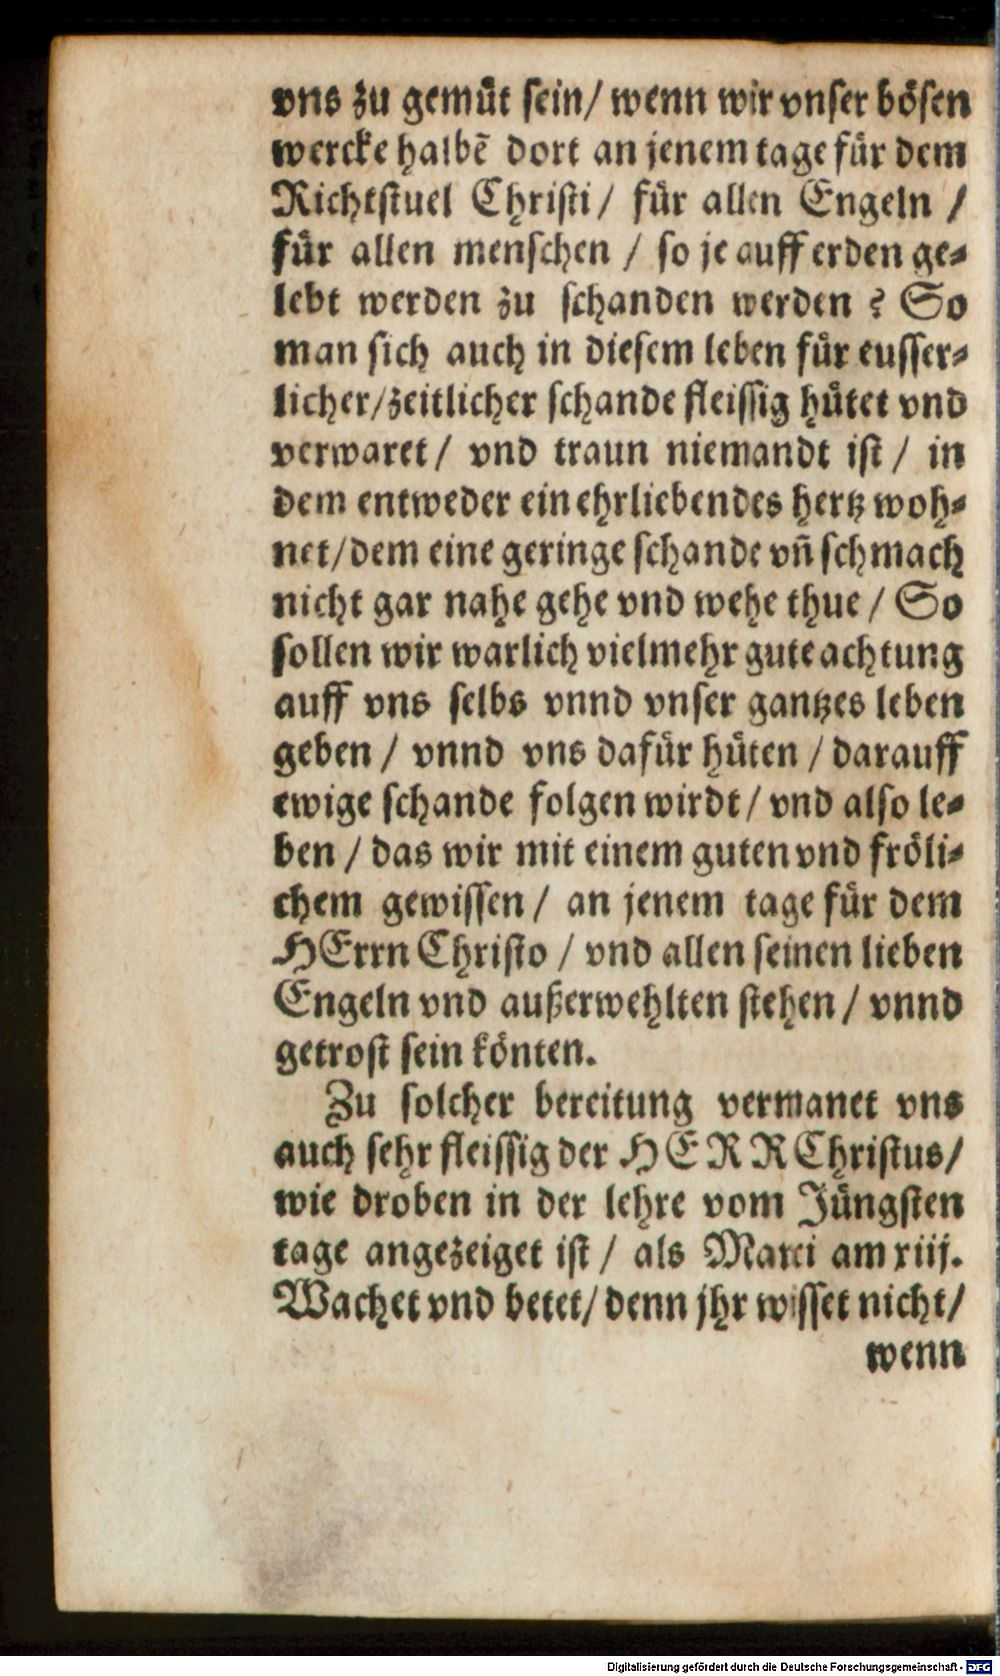 vns zu gemüt sein/ wenn wir vnser bösen
wercke halbē dort an jenem tage für dem
Richtstuel Christi/ für allen Engeln /
für allen menschen / so je auff erden ge-
lebt werden zu schanden werden ? So
man sich auch in diesem leben für eusser-
licher/zeitlicher schande fleissig hütet vnd
verwaret/ vnd traun niemandt ist / in
dem entweder ein ehrliebendes hertz woh-
net/dem eine geringe schande vñ schmach
nicht gar nahe gehe vnd wehe thue / So
sollen wir warlich vielmehr gute achtung
auff vns selbs vnnd vnser gantzes leben
geben / vnnd vns dafür hüten / darauff
ewige schande folgen wirdt/ vnd also le-
ben / das wir mit einem guten vnd fröli-
chem gewissen / an jenem tage für dem
HErrn Christo / vnd allen seinen lieben
Engeln vnd außerwehlten stehen / vnnd
getrost sein könten.
Zu solcher bereitung vermanet vns
auch sehr fleissig der HERR Christus/
wie droben in der lehre vom Jüngsten
tage angezeiget ist / als Marci am xiij.
Wachet vnd betet/ denn jhr wisset nicht/
wenn
Digitalisierung gefördert durch die Deutsche Forschungsgemeinschaft - DFG